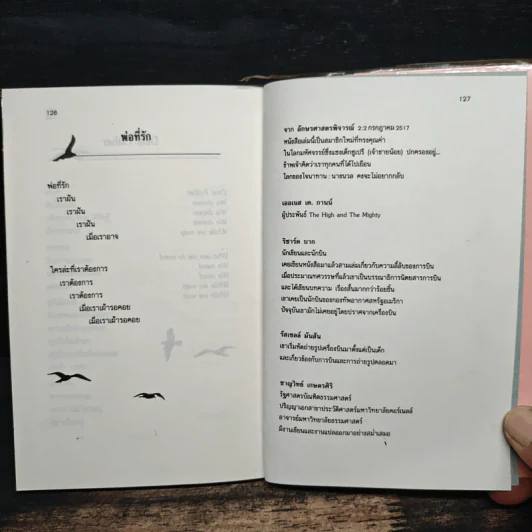 126
พ่อที่รัก
พ่อที่รัก
เราฝัน
เราฝัน
เราฝัน
เมื่อเราอาจ
ใครล่ะที่เราต้องการ
เราต้องการ
เราต้องการ
เมื่อเราเฝ้ารอคอย
เมื่อเราเฝ้ารอคอย
127
จาก อักษรศาสตรพิจารณ์ 2:2 กรกฎาคม 2517
หนังสือเล่มนี้เป็นสมาชิกใหม่ที่ทรงคุณค่า
ในโลกมหัศจรรย์ซึ่งแซงเตกซูเปรี (เจ้าชายน้อย) ปกครองอยู่...
ข้าพเจ้าคิดว่าเราทุกคนที่ได้ไปเยือน
โลกของโจนาทาน : นางนวล คงจะไม่อยากกลับ
เออเนส เค. กานน์
ผู้ประพันธ์ The High and The Mighty
ริชาร์ด บาก
นักเขียนและนักบิน
เคยเขียนหนังสือมาแล้วสามเล่มเกี่ยวกับความลี้ลับของการบิน
เมื่อประมาณทศวรรษที่แล้วเขาเป็นบรรณาธิการนิตยสารการบิน
และได้เขียนบทความ เรื่องสั้นมากกว่าร้อยชิ้น
เขาเคยเป็นนักบินของกองทัพอากาศสหรัฐอเมริกา
ปัจจุบันเขามักไม่เคยอยู่โดยปราศจากเครื่องบิน
รัสเซลล์ มันสัน
เขาเริ่มหัดถ่ายรูปเครื่องบินมาตั้งแต่เป็นเด็ก
และเกี่ยวข้องกับการบินและการถ่ายรูปตลอดมา
ชาญวิทย์ เกษตรศิริ
รัฐศาสตรบัณฑิตธรรมศาสตร์
ปริญญาเอกสาขาประวัติศาสตร์มหาวิทยาลัยคอร์แนลล์
อาจารย์มหาวิทยาลัยธรรมศาสตร์
มีงานเขียนและงานแปลออกมาอย่างสม่ำเสมอ